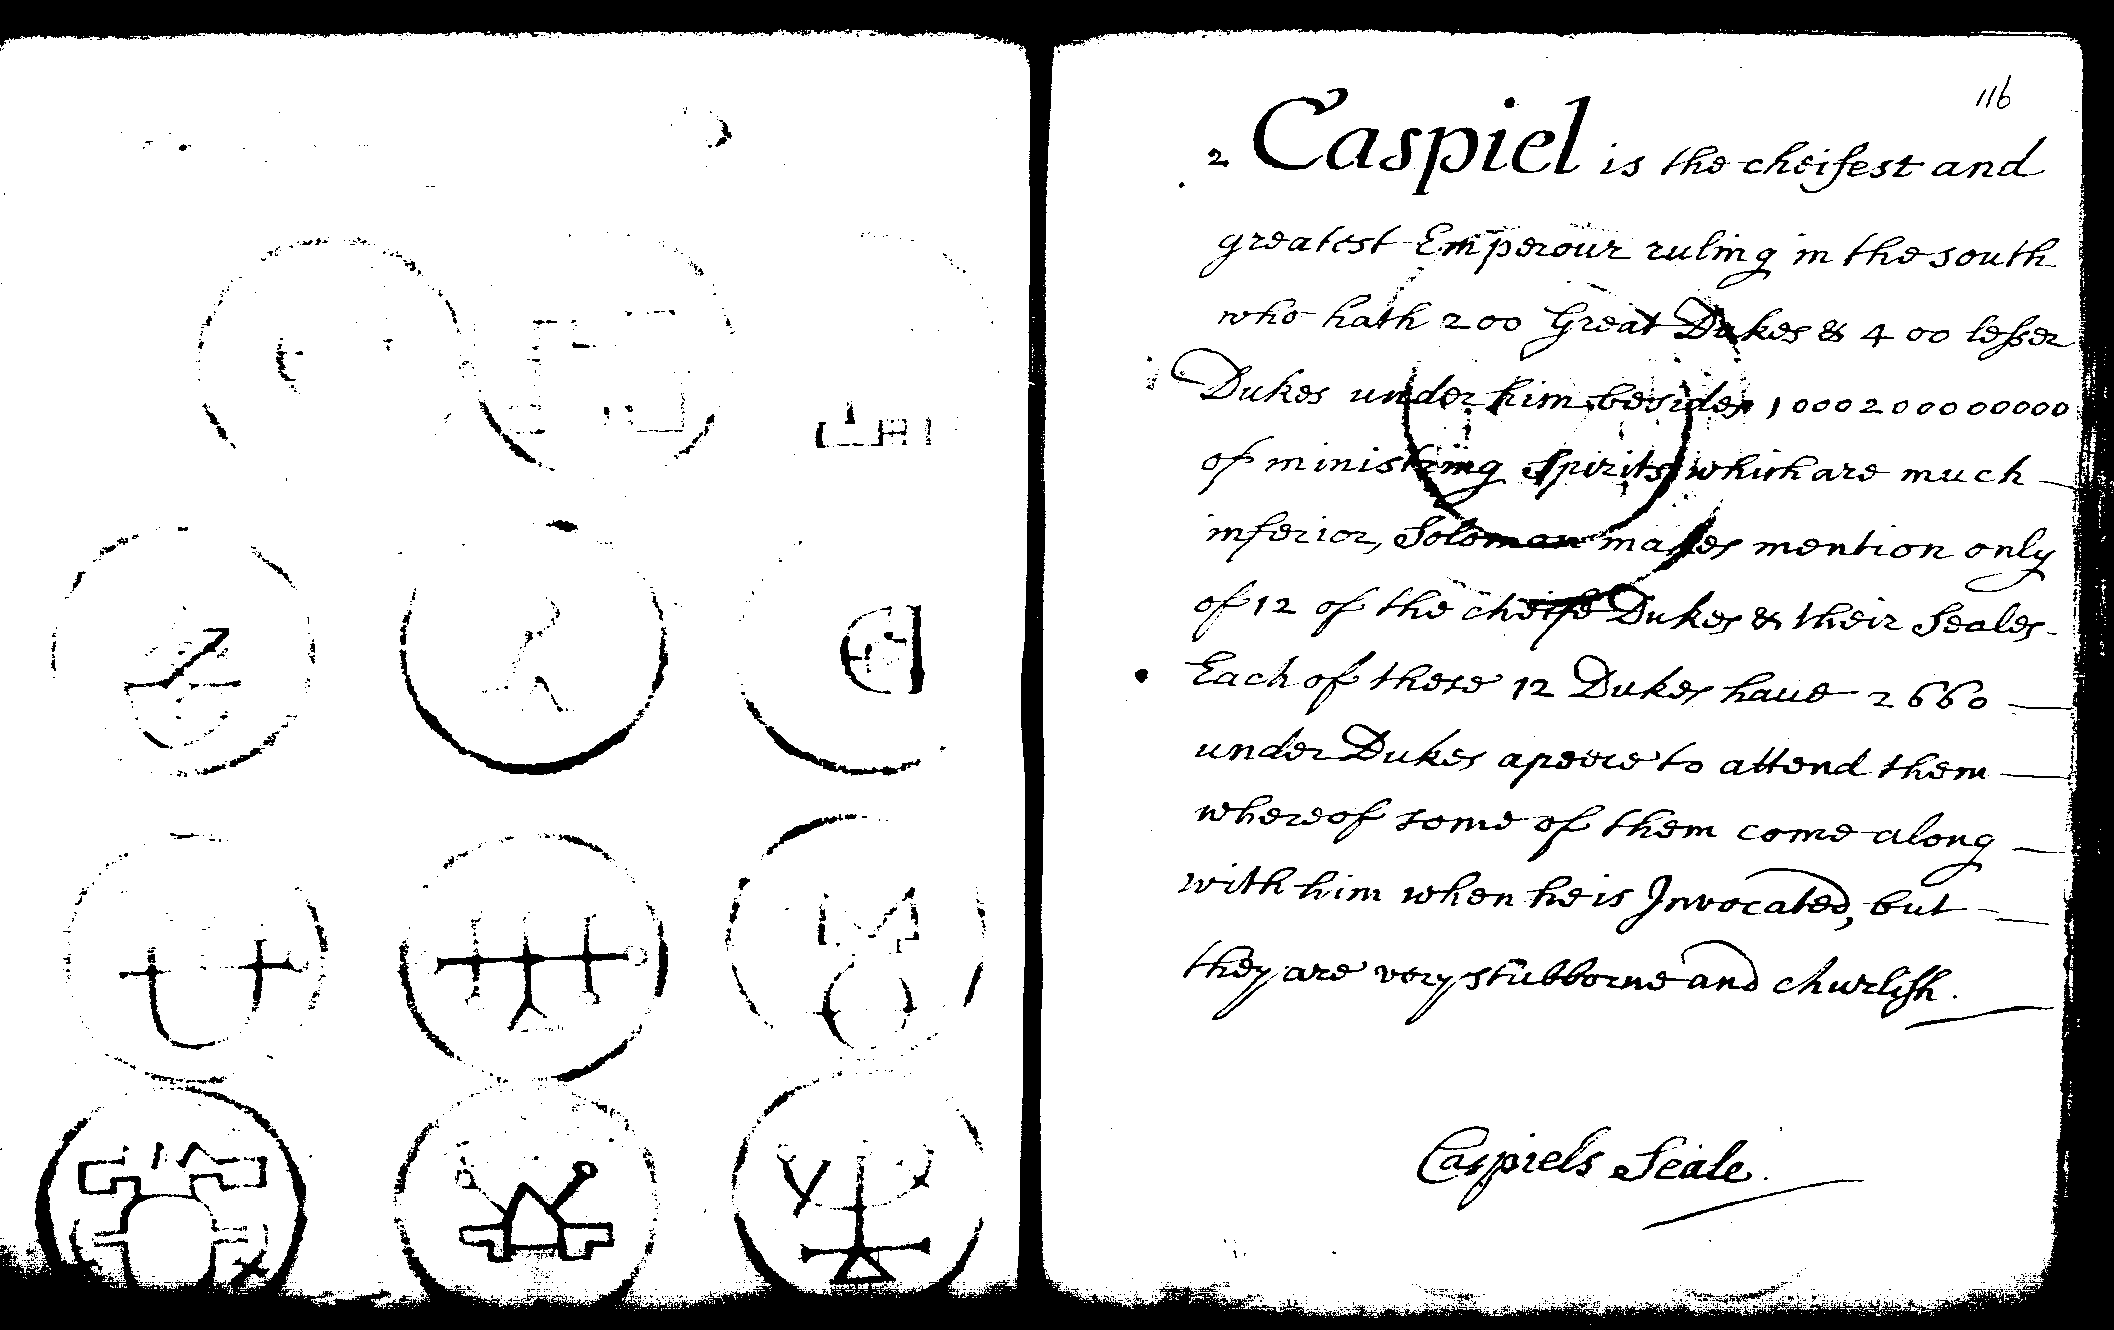 116
2 Caspiel is the cheifest and
greatest Emperour ruling in the south
who hath 200 Great Dukes & 400 lesser
Dukes under him besides 1000200000000
of ministring spirits which are much
inferior, Soloman makes mention only
of 12 of the cheife Dukes & their Seales
Each of these 12 Dukes haue 2660
under Dukes apeece to attend them
whereof some of them come along
with him when he is Invocated, but
they are very stubborne and churlish.
Caspiels Seale.